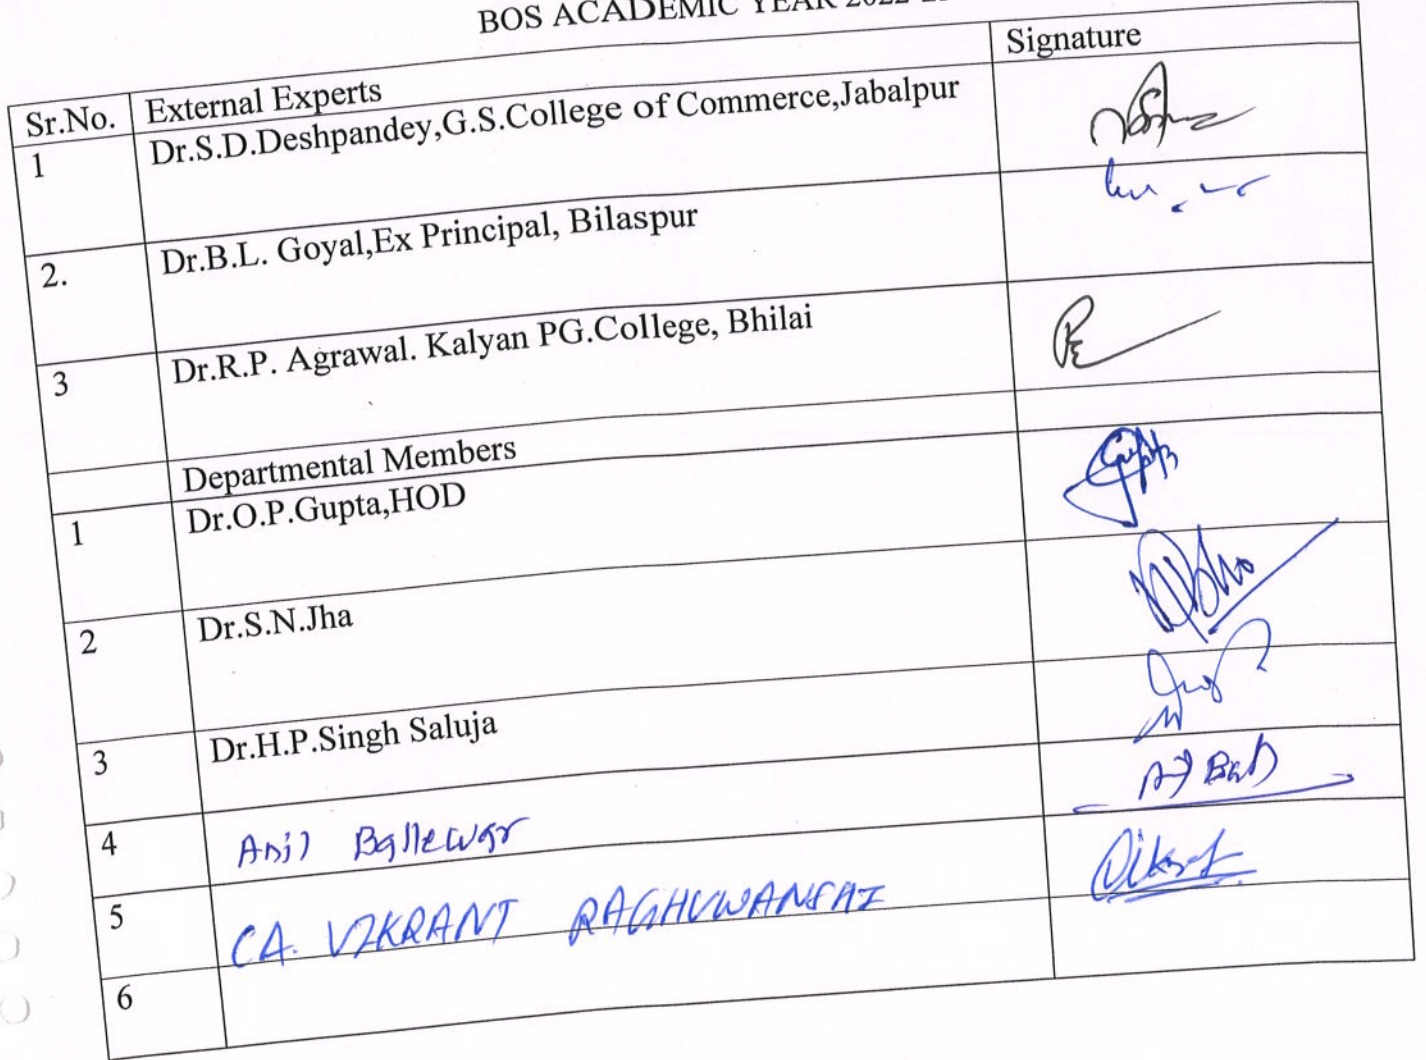 BOS ACADEMIC YEAR 2022-2
Sr.No. External Experts Signature
1 Dr.S.D.Deshpandey,G.S.College of Commerce,Jabalpur
2. Dr.B.L. Goyal,Ex Principal, Bilaspur
3 Dr.R.P. Agrawal. Kalyan PG.College, Bhilai
Departmental Members
1 Dr.O.P.Gupta,HOD Gupta
2 Dr.S.N.Jha
3 Dr.H.P.Singh Saluja
4 Anil Ballewar
5 CA. VIKRANT RAGHUWANSHI
6